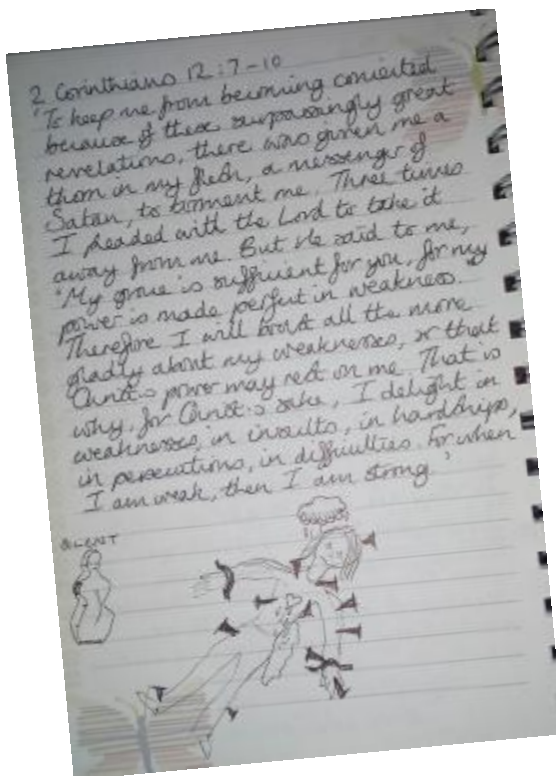 2 Corinthians 12:7-10
'To keep me from becoming conceited
because of these surpassingly great
revelations, there was given me a
thorn in my flesh, a messenger of
Satan, to torment me. Three times
I pleaded with the Lord to take it
away from me. But He said to me,
"My grace is sufficient for you, for my
power is made perfect in weakness."
Therefore I will boast all the more
gladly about my weaknesses, so that
Christ's power may rest on me. That is
why, for Christ's sake, I delight in
weaknesses, in insults, in hardships,
in persecutions, in difficulties. For when
I am weak, then I am strong.'